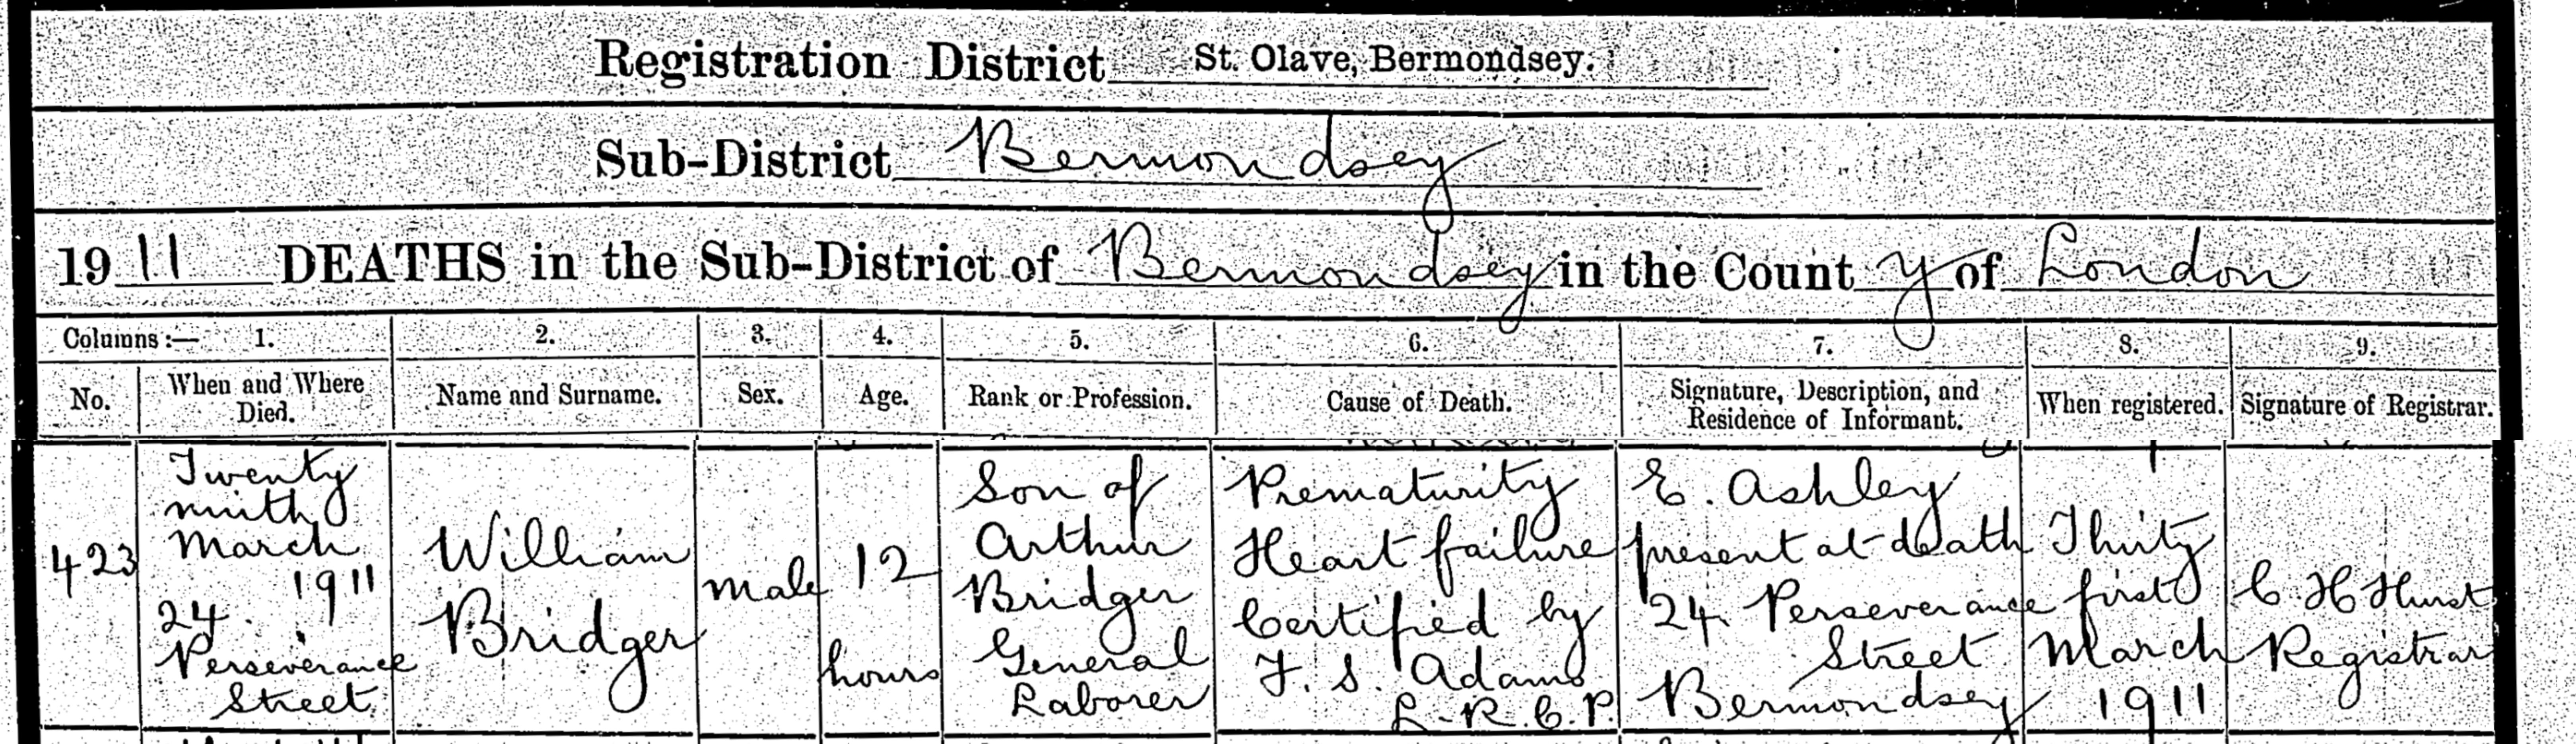 Registration District St. Olave, Bermondsey.
Sub-District Bermondsey
1911 DEATHS in the Sub-District of Bermondsey in the County of London
Columns:— 1. 2. 3. 4. 5. 6. 7. 8. 9.
No.
When and Where
Died.
Name and Surname.
Sex.
Age.
Rank or Profession.
Cause of Death.
Signature, Description, and
Residence of Informant.
When registered.
Signature of Registrar.
423
Twenty
ninth
March
1911
24
Perseverance
Street
William
Bridger
Male
12
hours
Son of
Arthur
Bridger
General
Laborer
Prematurity
Heart failure
Certified by
F. S. Adams
L.R.C.P.
E. Ashley
present at death
24 Perseverance
Street
Bermondsey
Thirty
first
March
1911
C H Hurst
Registrar